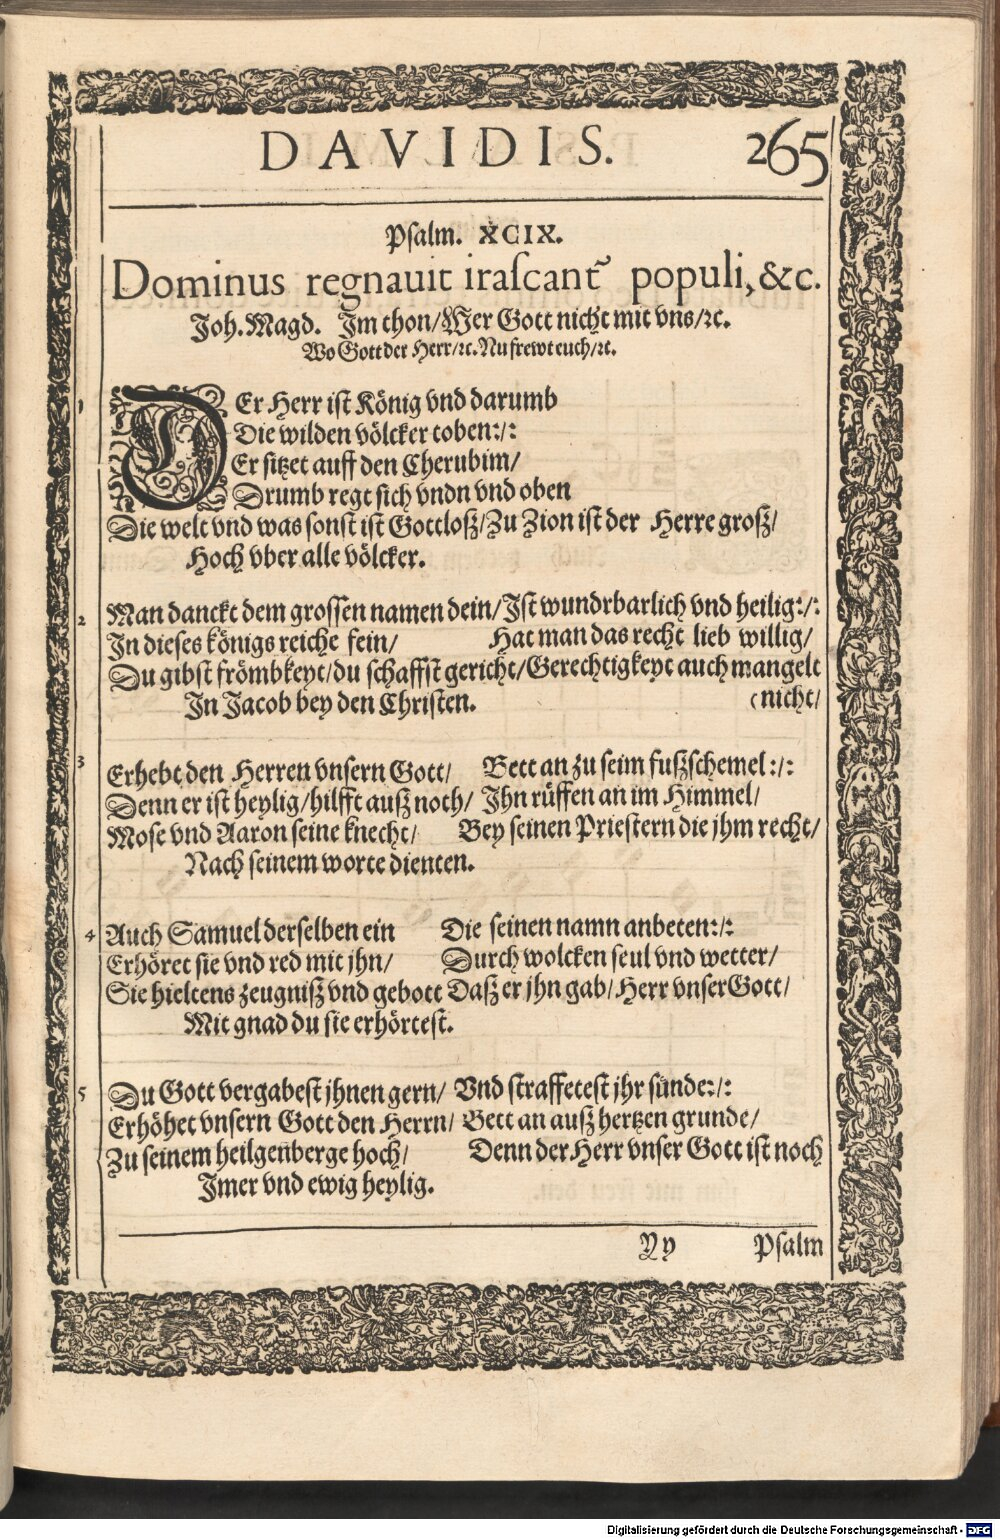 DAVIDIS. 265
Psalm. XCIX.
Dominus regnauit irascant̃ populi, &c.
Joh. Magd. Im thon/Wer Gott nicht mit vns/ꝛc.
Wo Gott der Herr/ꝛc. Nu frewt euch/ꝛc.
1 DEr Herr ist König vnd darumb
Die wilden völcker toben:/:
Er sitzet auff den Cherubim/
Drumb regt sich vndn vnd oben
Die welt vnd was sonst ist Gottloß/Zu Zion ist der Herre groß/
Hoch vber alle völcker.
2 Man danckt dem grossen namen dein/Ist wundrbarlich vnd heilig:/:
In dieses königs reicht fein/ Hat man das recht lieb willig/
Du gibst frömbkeyt/du schaffst gericht/Gerechtigkeyt auch mangelt
In Jacob bey den Christen. (nicht/
3 Erhebt den Herren vnsern Gott/ Bett an zu seim fußschemel:/:
Denn er ist heylig/hilfft auß noch/ Ihn rüffen an im Himmel/
Mose vnd Aaron seine knecht/ Bey seinen Priestern die jhm recht/
Nach seinem worte dienten.
4 Auch Samuel derselben ein Die seinen namn anbeten:/:
Erhöret sie vnd red mit jhn/ Durch wolcken seul vnd wetter/
Sie hieltens zeugniß vnd gebott Daß er jhn gab/Herr vnser Gott/
Mit gnad du sie erhörtest.
5 Du Gott vergabest jhnen gern/ Vnd straffetest jhr sünde:/:
Erhöhet vnsern Gott den Herrn/ Bett an auß hertzen grunde/
Zu seinem heilgenberge hoch/ Denn der Herr vnser Gott ist noch
Imer vnd ewig heylig.
Yy Psalm
Digitalisierung gefördert durch die Deutsche Forschungsgemeinschaft - DFG